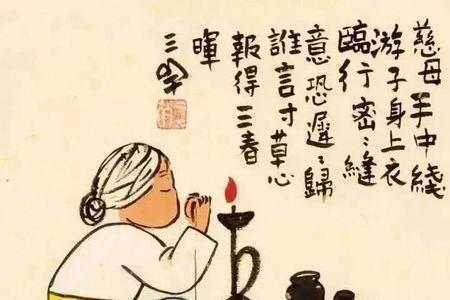 慈母手中綫
游子身上衣
臨行密〻縫
意恐遲〻歸
誰言寸草心
報得三春
暉